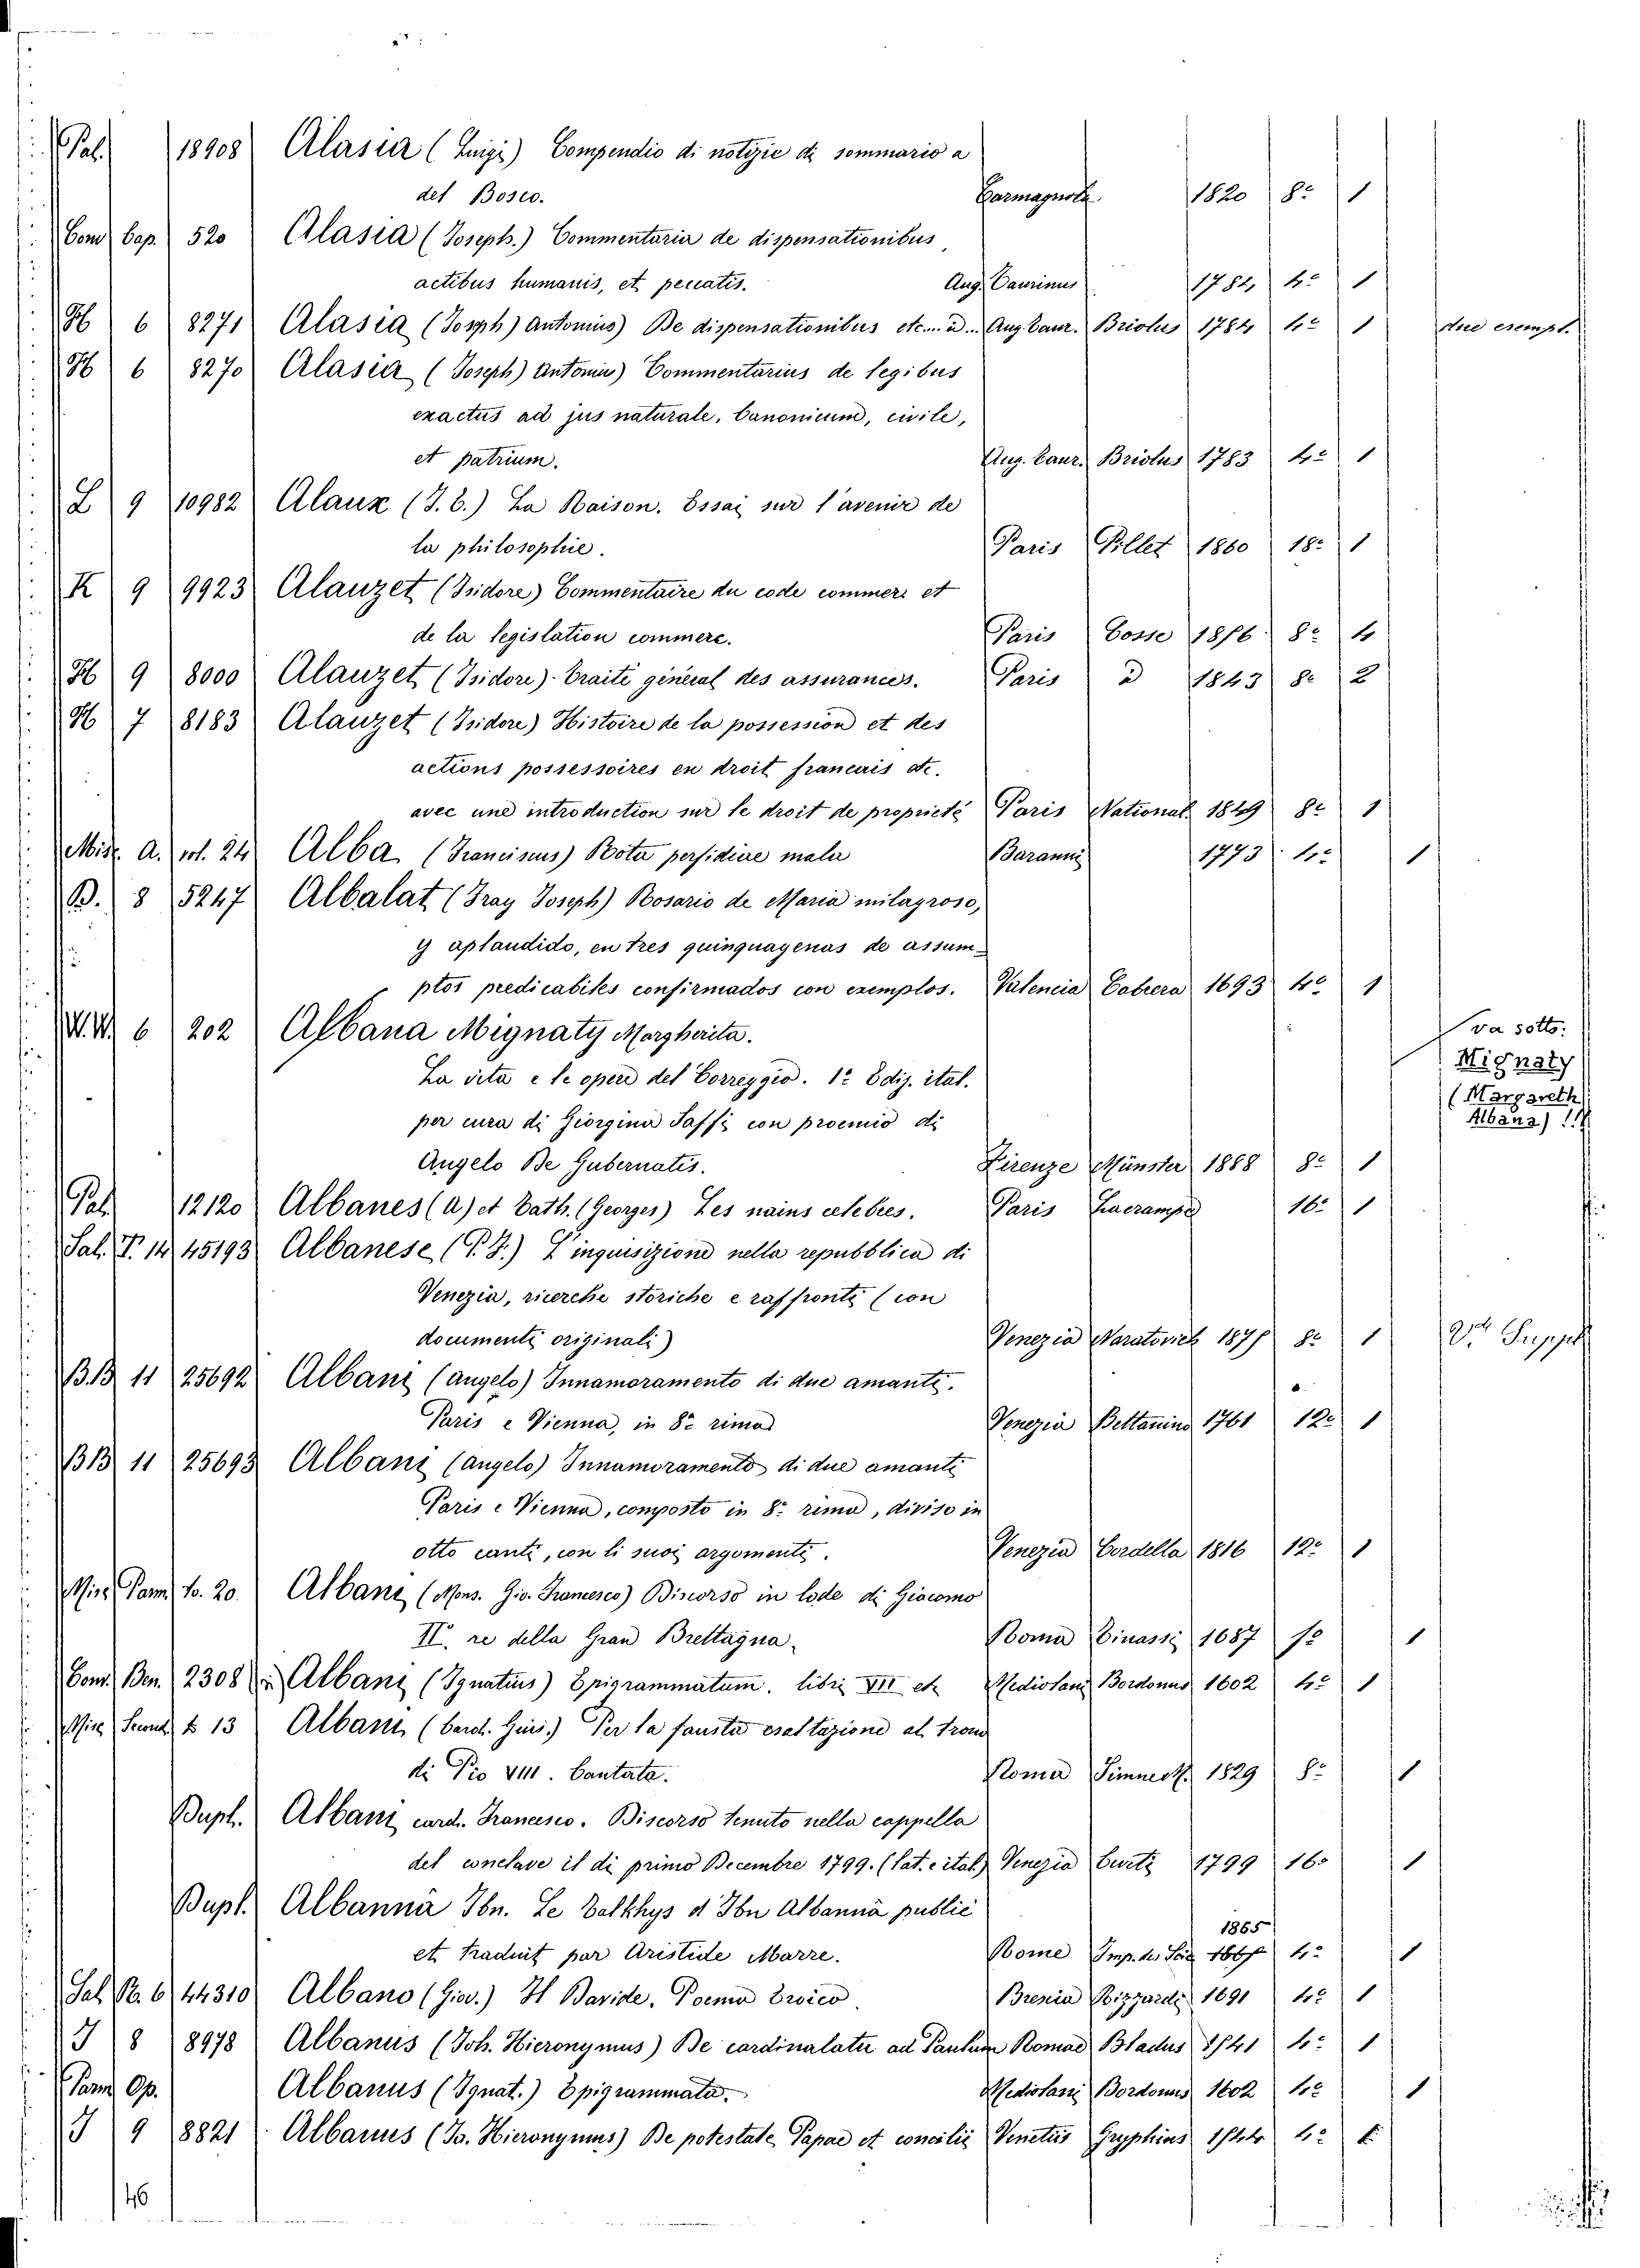 Pal. 18908 Alasia (Luigi) Compendio di notizie di sommario a
del Bosco. Carmagnola 1820 8º 1
Com Cap. 520 Alasia (Joseph.) Commentaria de dispensationibus,
actibus humanis, et peccatis. Aug. Taurinus 1784 4º 1
H 6 8271 Alasia (Joseph) Antonius) De dispensationibus etc.... Aug. Taur. Briolus 1784 4º 1 due esempl.
H 6 8270 Alasia (Joseph) Antonius) Commentarius de legibus
exactus ad jus naturale, Canonicum, civile,
et patrium. Aug. Taur. Briolus 1783 4º 1
L 9 10982 Alaux (J. E.) La Raison. Essai sur l'avenir de
la philosophie. Paris Pillet 1860 18º 1
K 9 9923 Alauzet (Isidore) Commentaire du code commerc et
de la legislation commerc. Paris Cosse 1856 8º 4
H 9 8000 Alauzet (Isidore) Traité général des assurances. Paris 1843 8º 2
H 7 8183 Alauzet (Isidore) Histoire de la possession et des
actions possessoires en droit francais etc.
avec une introduction sur le droit de propriété Paris National 1849 8º 1
Misc. A. vol. 24 Alba (Franciscus) Dota perfidiae mala 1773 4º 1
B. 8 5247 Albalat (Fray Joseph) Rosario de Maria milagroso,
y aplaudido, en tres quinquagenas de assum-
ptos predicabiles confirmados con exemplos. Valencia Cabrera 1693 4º 1
W.W. 6 202 Albana Mignaty Margherita. va sotto:
La vita e le opere del Correggio. 1ª Ediz. ital. Mignaty
per cura di Giorgina Saffi con proemio di (Margareth
Angelo De Gubernatis. Firenze Münster 1888 8º 1 Albana) !!
Pal. 12120 Albanes (A) et Fath. (Georges) Les nains celebres. Paris Lacrampe 16º 1
Sal. T. 14 45193 Albanese (P. F.) L'inquisizione nella repubblica di
Venezia, ricerche storiche e raffronti (con
documenti originali) Venezia Naratovich 1875 8º 1 Suppl
B.B 11 25692 Albani (Angelo) Innamoramento di due amanti.
Paris e Vienna, in 8ª rima Venezia Bettanino 1761 12º 1
BB 11 25693 Albani (Angelo) Innamoramento di due amanti
Paris e Vienna, composto in 8ª rima, diviso in
otto canti, con li suoi argomenti. Venezia Cordella 1816 12º 1
Misc Pam. to. 20. Albani (Mons. Gio. Francesco) Discorso in lode di Giacomo
II. re della Gran Brettagna. Roma Tinassi 1687 fº 1
Com. Ben. 2308 Albani (Ignatius) Epigrammatum. libri VII etc Mediolani Bordonus 1602 4º 1
Misc Second. to 13 Albani (Card. Gius.) Per la fausta esaltazione al trono
di Pio VIII. Cantata. Roma 1829 8º 1
Dupl. Albani card. Francesco. Discorso tenuto nella cappella
del conclave il di primo Decembre 1799. (lat. e ital.) Venezia Curti 1799 16º 1
Dupl. Albannâ Ibn. Le Talkhys d'Ibn Albannâ publié 1865
et traduit par Aristide Marre. Rome Imp. des 4º 1
Sal. 6 44310 Albano (Giov.) Il Davide. Poema Eroico. Brescia Rizzardi 1691 4º 1
J 8 8978 Albanus (Joh. Hieronymus) De cardinalatu ad Paulum Romae Bladus 1541 4º 1
Pam. Op. Albanus (Ignat.) Epigrammata. Mediolani Bordonus 1602 4º 1
J 9 8821 Albanus (Jo. Hieronymus) De potestate Papae et concilii Venetiis Gryphius 1544 4º 1
46